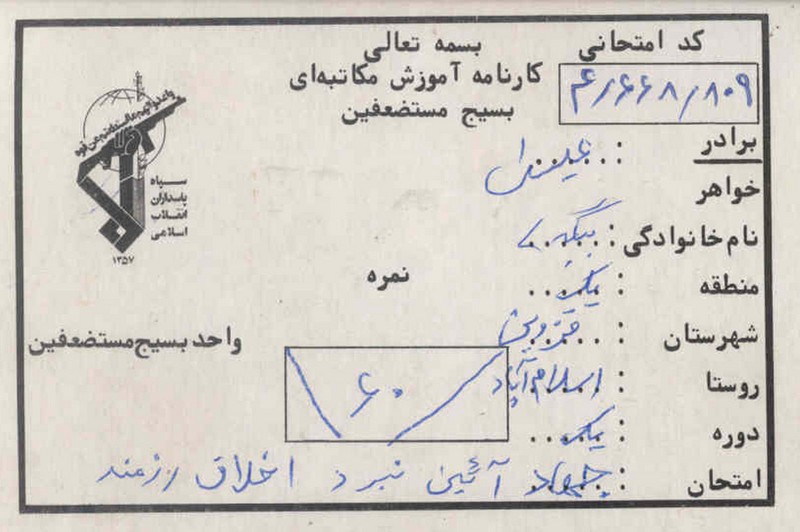 بسمه تعالی
کارنامه آموزش مکاتبه‌ای
بسیج مستضعفین
کد امتحانی
۴/۶۶۸/۸۰۹
سپاه
پاسداران
انقلاب
اسلامی
۱۳۵۷
واحد بسیج مستضعفین
برادر :
خواهر
نام خانوادگی :
منطقه : یک
شهرستان : قزوین
روستا : اسلام آباد
دوره : یک
امتحان : جهاد آئین نبرد اخلاق رزمند
نمره
۶۰